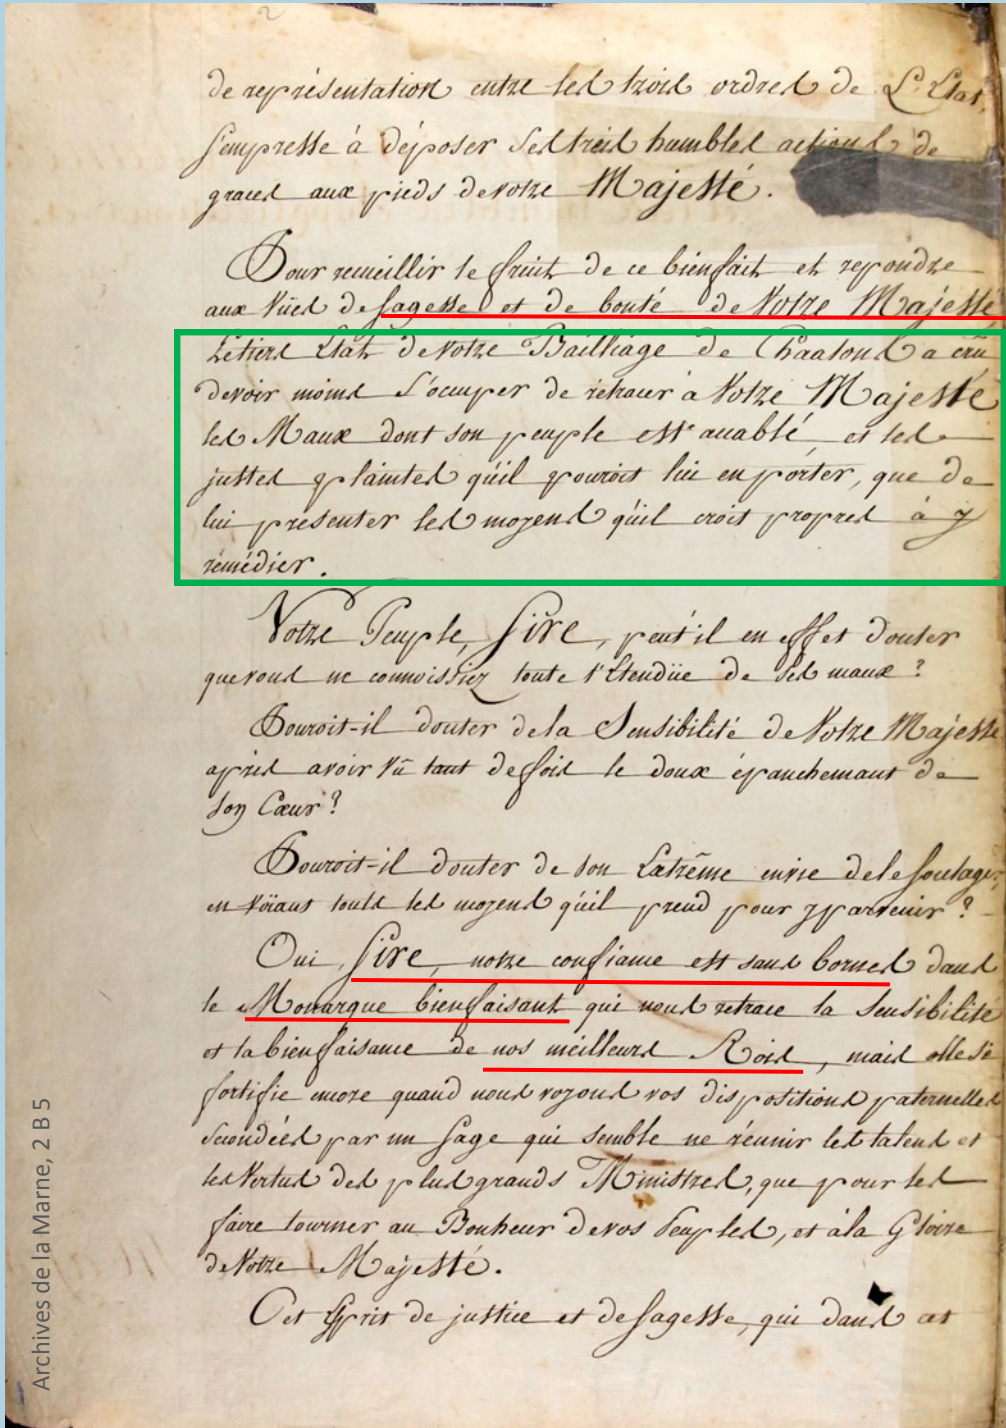 2
de représentation entre les trois ordres de L'Etat,
s'empresse à déposer ses treis humbles actions de
graces aux pieds de votre Majesté.
Pour recueillir le fruit de ce bienfait et repondre
aux Vües de sagesse et de bonté de Votre Majesté
Le tiers Etat de Votre Bailliage de Chaalons a crû
devoir moins s'occuper de retracer à Votre Majesté
les Maux dont son peuple est accablé et les
justes plaintes qu'il pouroit lui en porter, que de
lui presenter les moyens qu'il croit propres à y
remédier.
Votre Peuple, Sire, peut'il en effet douter
que vous ne connoissiez toute l'Etendüe de ses maux ?
Pouroit-il douter de la Sensibilité de Votre Majesté
après avoir Vû tant de fois le doux épanchemant de
son Cœur ?
Pouroit-il douter de son Extrême envie de le soulager
en Voïant touts les moyens qu'il prend pour y parvenir ?
Oui, Sire, notre confiance est sans bornes dans
le Monarque bienfaisant qui nous retrace la sensibilité
et la bienfaisance de nos meilleurs Rois, mais elle se
fortifie encore quand nous voyons vos dispositions paternelles
secondées par un sage qui semble ne réunir les talens et
les Vertus des plus grands Ministres, que pour les
faire tourner au Bonheur de vos Peuples, et à la Gloire
de Votre Majesté.
Cet Esprit de justice et de sagesse, qui dans cet
Archives de la Marne, 2 B 5